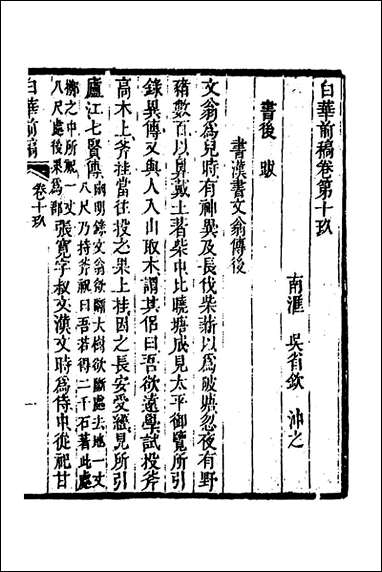 白華前稿卷第十玖
南滙 吳省欽 沖之
書後 跋
書漢書文翁傳後
文翁爲兒時有神異及長伐柴薪以爲陂塘忽夜有野
豬數百以鼻戴土著柴中比曉塘成見太平御覽所引
錄異傳又與人入山取木謂其侶曰吾欲遠學試投斧
高木上斧挂當往投之果上挂因之長安受經見所引
廬江七賢傳
幽明錄文翁欲斷大樹欲斷處去地一丈
八尺乃持斧祝曰吾若得二千石著此處
擲之中所祝一丈
八尺處後果爲郡
張寬字叔文漢文時爲侍中從祀甘
白華前稿
卷十玖
一